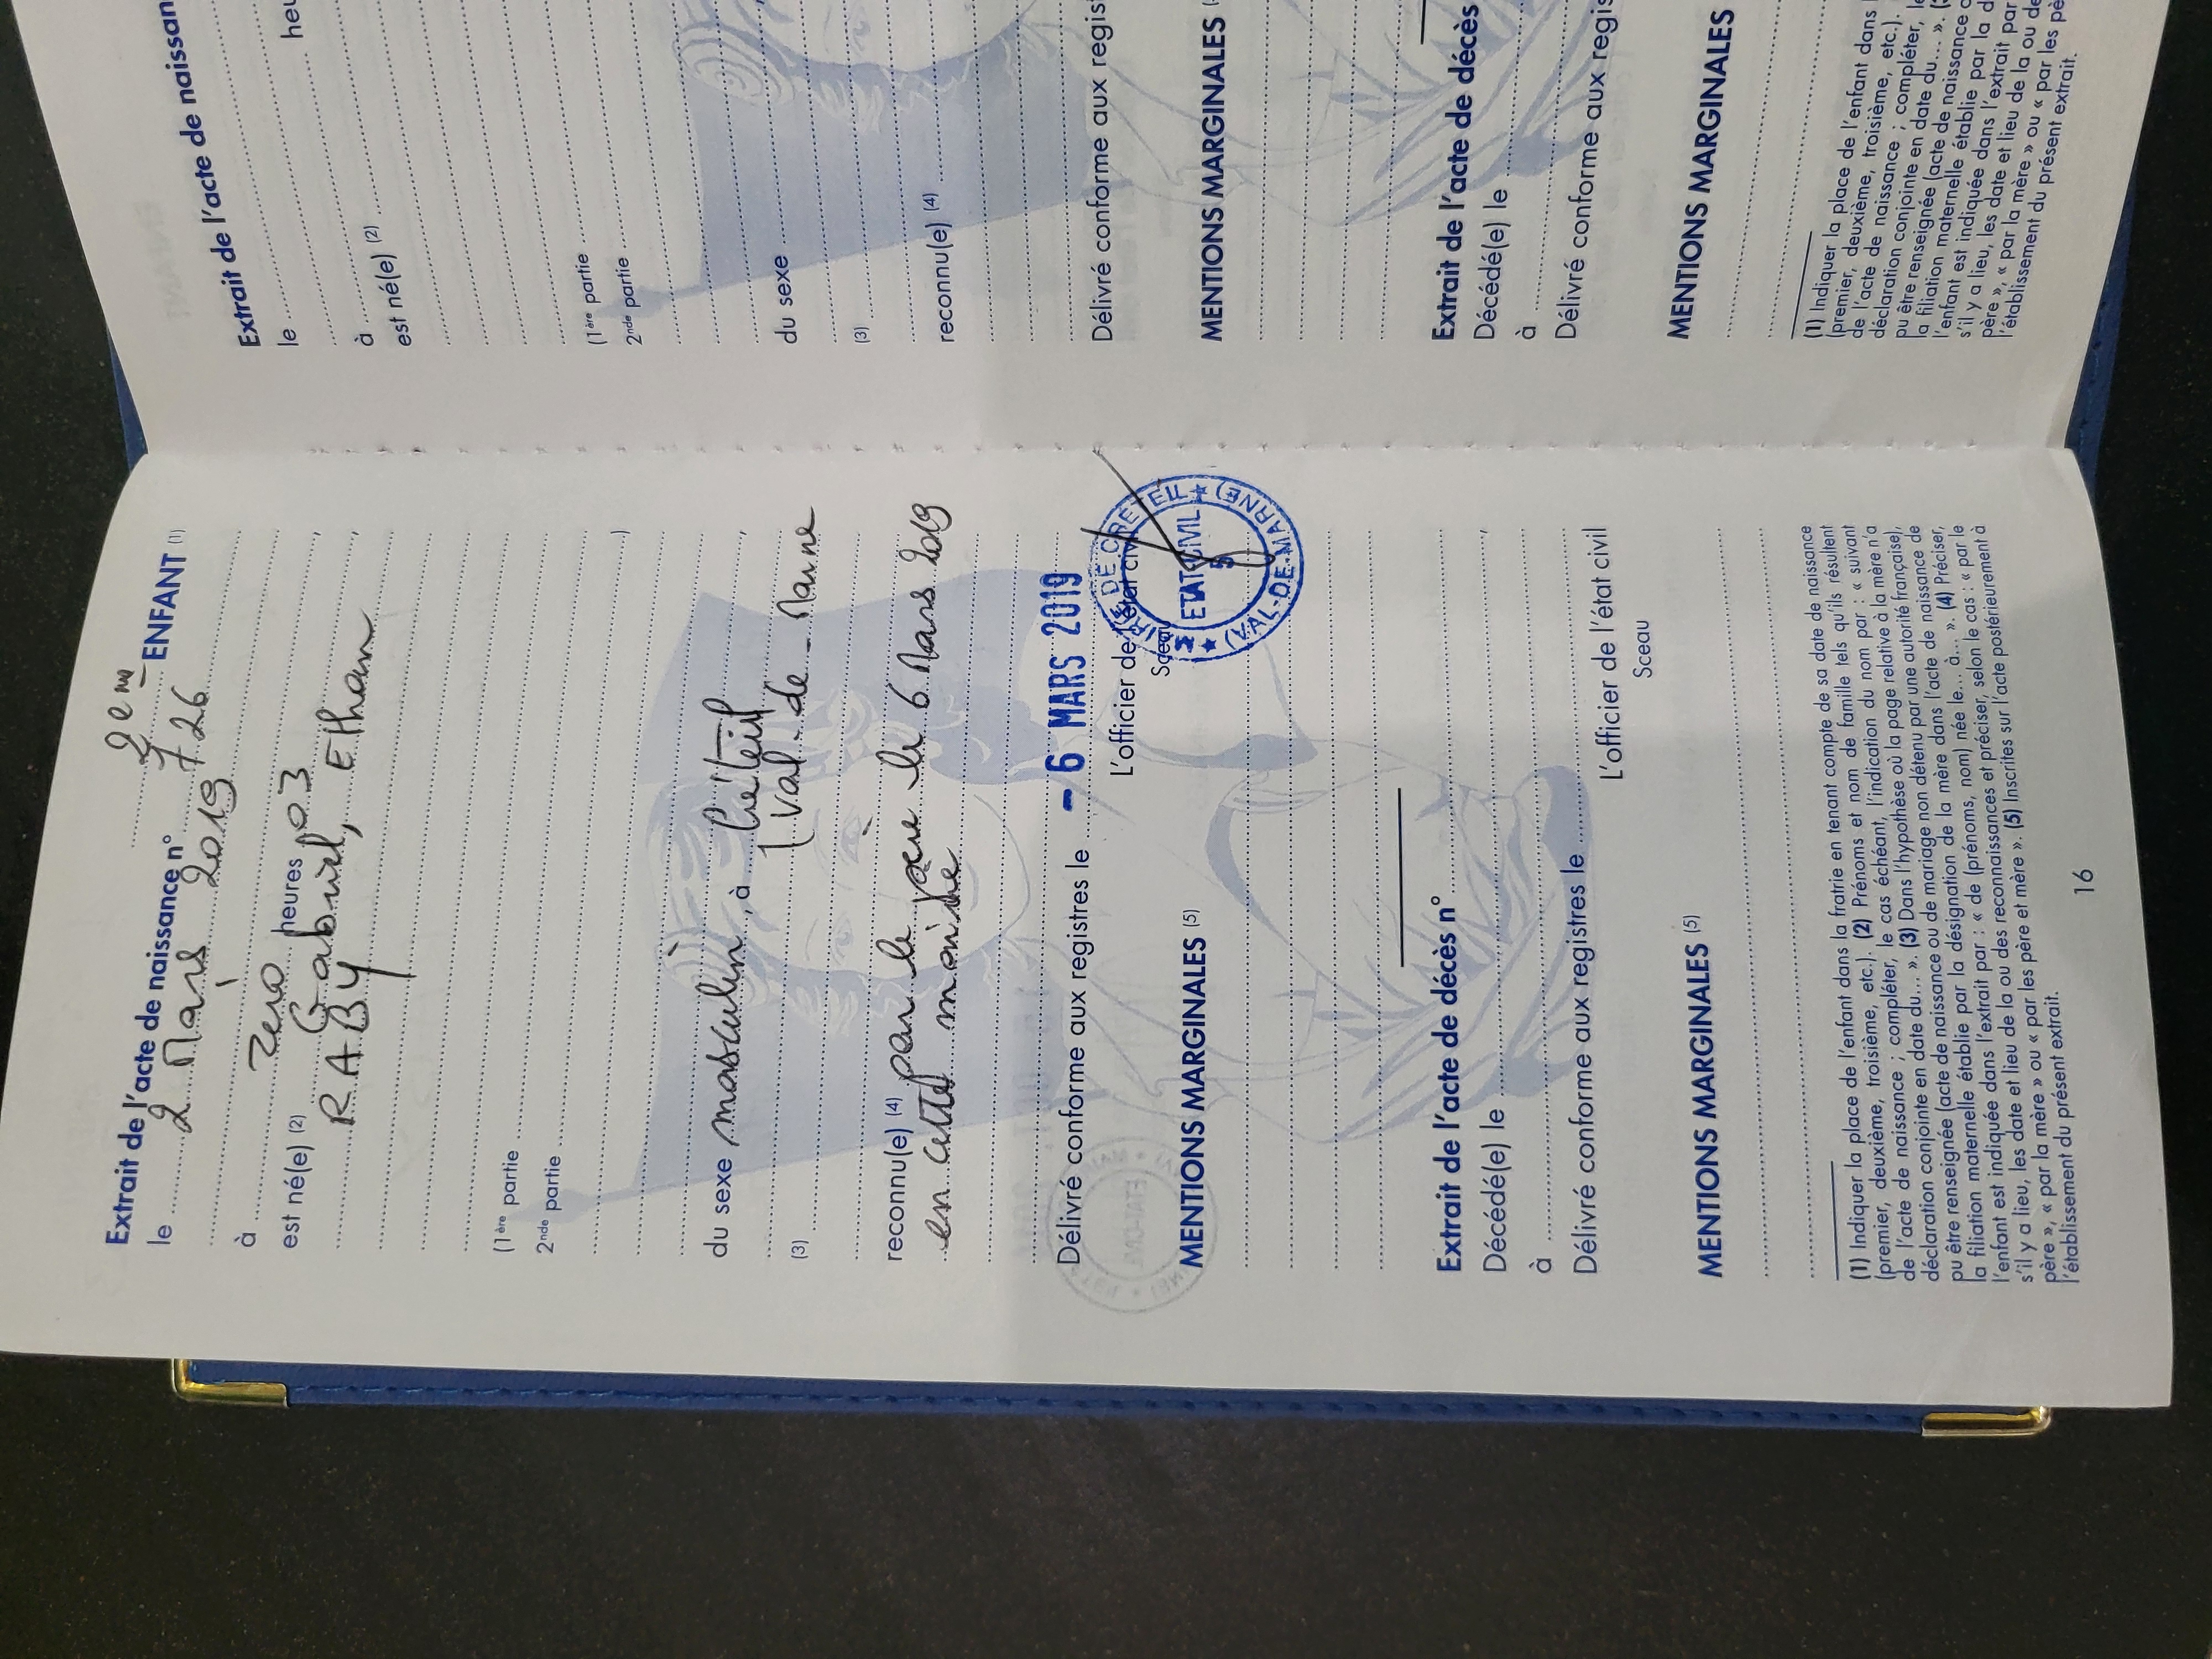 2eme ENFANT (1)
Extrait de l'acte de naissance n° 726
le 2 Mars 2019
à zéro heures 03
est né(e) (2) Gabriel, Ethan
RABY
(1ère partie
2nde partie )
du sexe masculin, à Créteil,
(3) (Val-de-Marne
reconnu(e) (4) par le père le 6 Mars 2019
en cette mairie
Délivré conforme aux registres le - 6 MARS 2019
L'officier de l'état civil
Sceau
MAIRIE DE CRÉTEIL
ETAT CIVIL
5
(VAL-DE-MARNE)
MENTIONS MARGINALES (5)
Extrait de l'acte de décès n°
Décédé(e) le ,
à
Délivré conforme aux registres le
L'officier de l'état civil
Sceau
MENTIONS MARGINALES (5)
(1) Indiquer la place de l'enfant dans la fratrie en tenant compte de sa date de naissance
(premier, deuxième, troisième, etc.). (2) Prénoms et nom de famille tels qu'ils résultent
de l'acte de naissance ; compléter, le cas échéant, l'indication du nom par : « suivant
déclaration conjointe en date du... ». (3) Dans l'hypothèse où la page relative à la mère n'a
pu être renseignée (acte de naissance ou de mariage non détenu par une autorité française),
la filiation maternelle établie par la désignation de la mère dans l'acte de naissance de
l'enfant est indiquée dans l'extrait par : « de (prénoms, nom) née le... à... ». (4) Préciser,
s'il y a lieu, les date et lieu de la ou des reconnaissances et préciser, selon le cas : « par le
père », « par la mère » ou « par les père et mère ». (5) Inscrites sur l'acte postérieurement à
l'établissement du présent extrait.
16
Extrait de l'acte de naissan
le
à heu
est né(e) (2)
(1ère partie
2nde partie
du sexe
(3)
reconnu(e) (4)
Délivré conforme aux regist
MENTIONS MARGINALES
Extrait de l'acte de décès
Décédé(e) le
à
Délivré conforme aux regis
MENTIONS MARGINALES
(1) Indiquer la place de l'enfant dans
(premier, deuxième, troisième, etc.).
de l'acte de naissance ; compléter, le
déclaration conjointe en date du... ». (
pu être renseignée (acte de naissance o
la filiation maternelle établie par la d
l'enfant est indiquée dans l'extrait par
s'il y a lieu, les date et lieu de la ou de
père », « par la mère » ou « par les pè
l'établissement du présent extrait.